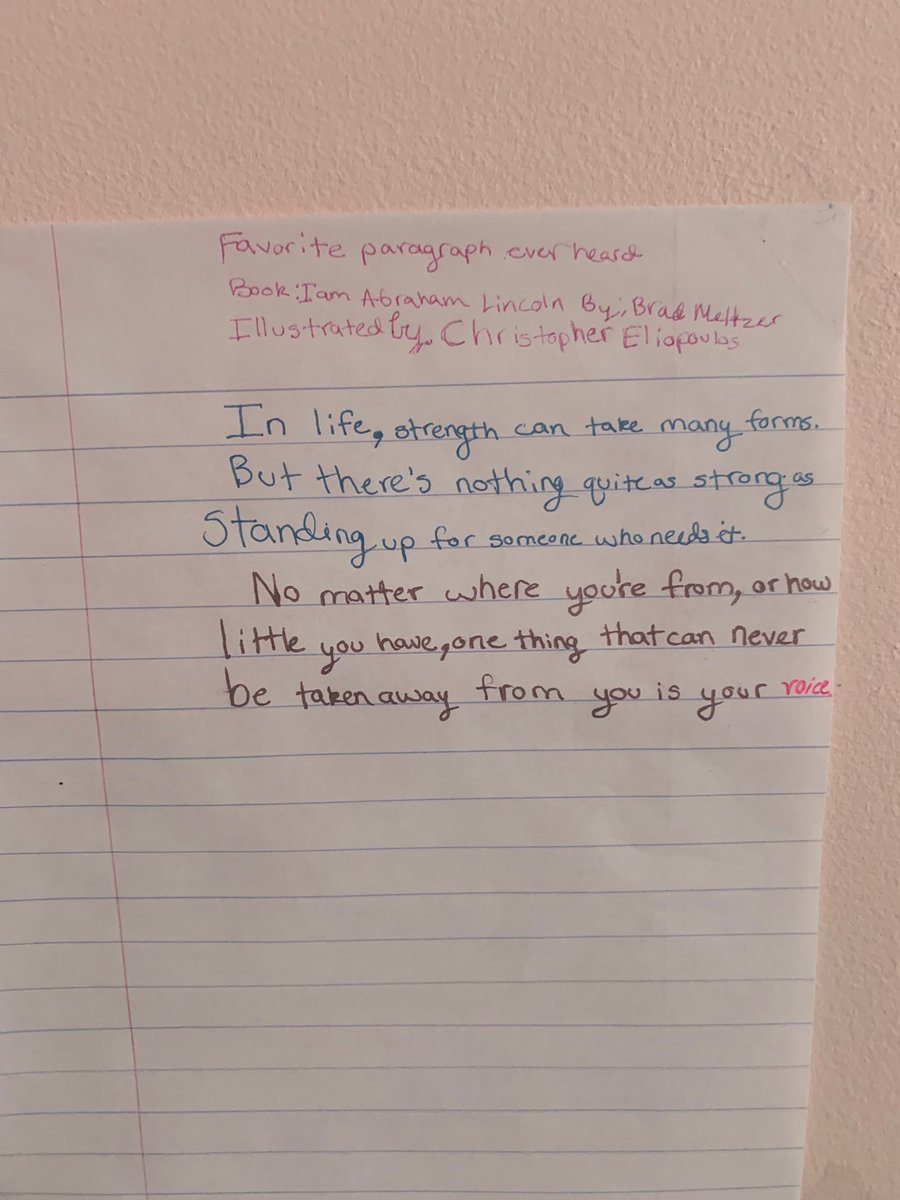 Favorite paragraph ever heard
Book: I am Abraham Lincoln By; Brad Meltzer
Illustrated by. Christopher Eliopoulos
In life, strength can take many forms.
But there's nothing quite as strong as
Standing up for someone who needs it.
No matter where you're from, or how
little you have, one thing that can never
be taken away from you is your voice.